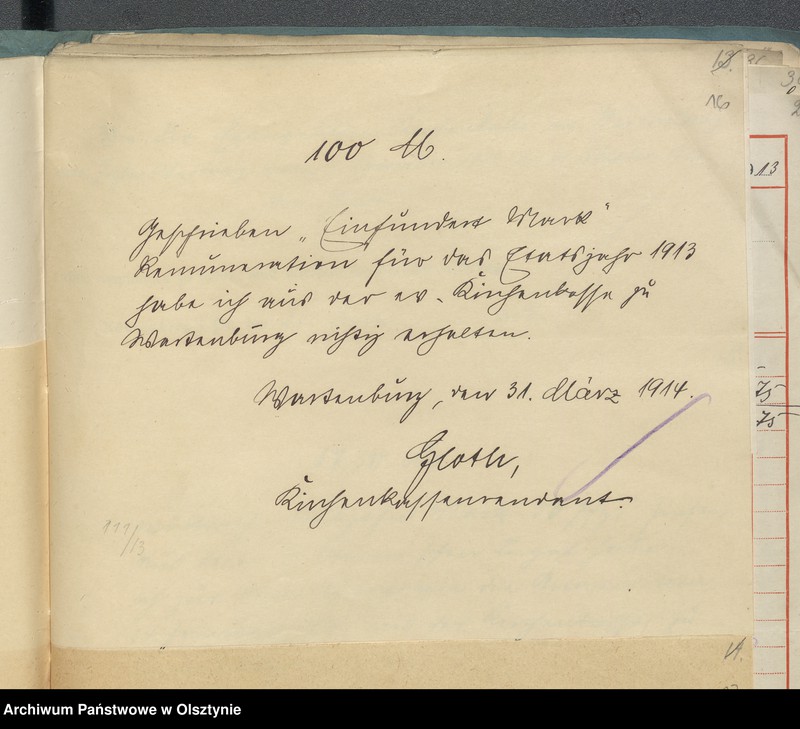 13.
16
100 M.
Geschrieben „Einhundert Mark"
Remuneration für das Etatsjahr 1913
habe ich aus der ev. Kirchenkasse zu
Wartenburg richtig erhalten.
Wartenburg, den 31. März 1914.
Gloth,
Kirchenkassenrendant.
111/13
13
75
75
Archiwum Państwowe w Olsztynie